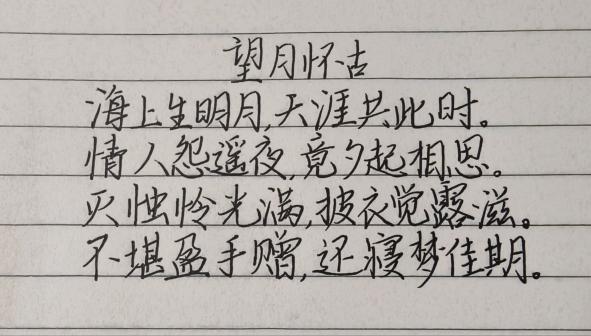 望月怀古
海上生明月,天涯共此时。
情人怨遥夜,竟夕起相思。
灭烛怜光满,披衣觉露滋。
不堪盈手赠,还寝梦佳期。